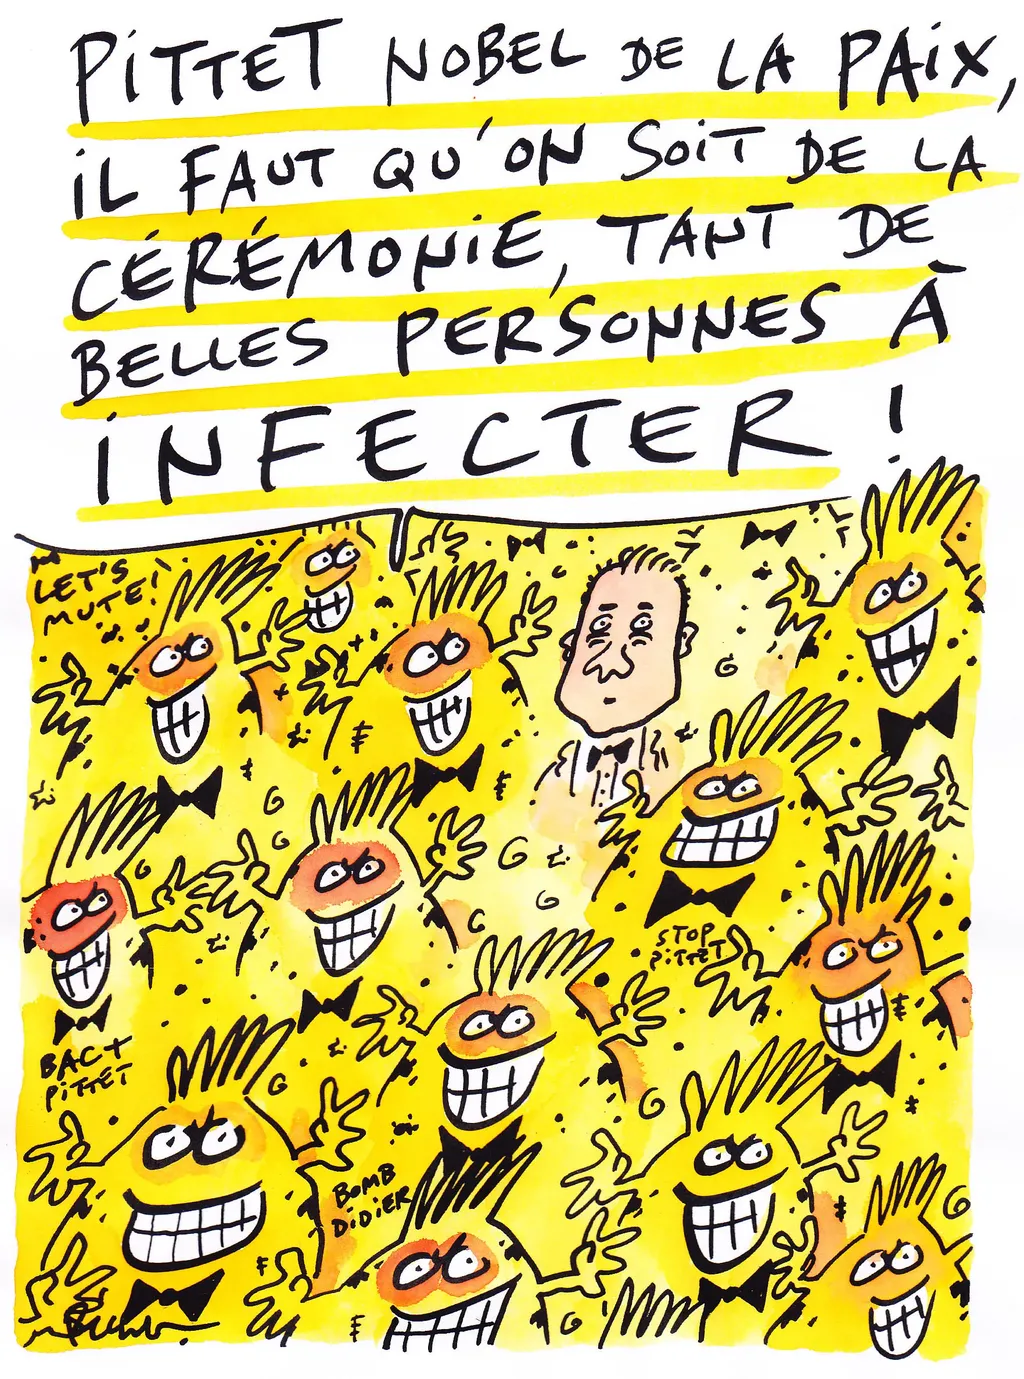 PITTET NOBEL DE LA PAIX,
IL FAUT QU'ON SOIT DE LA
CÉRÉMONIE, TANT DE
BELLES PERSONNES À
INFECTER !
LET'S
MUTE!
STOP
PITTET
BACT
PITTET
BOMB
DIDIER